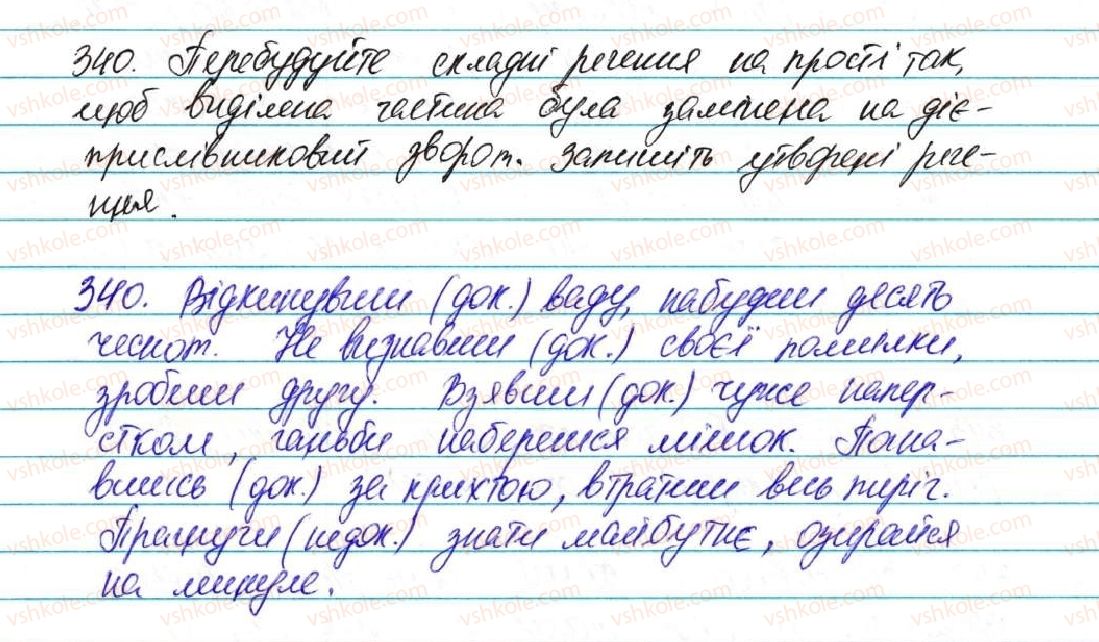 340. Перебудуйте складні речення на прості так,
щоб виділена частина була замінена на діє-
прислівниковий зворот. Запишіть утворені рече-
ння.
340. Відкинувши (док.) ваду, набудеш десять
чеснот. Не визнавши (док.) своєї помилки,
зробиш другу. Взявши (док.) чуже напер-
стком, ганьби наберешся мішок. Погна-
вшись (док.) за крихтою, втратиш весь пиріг.
Прагнучи (недок.) знати майбутнє, озирайся
на минуле.